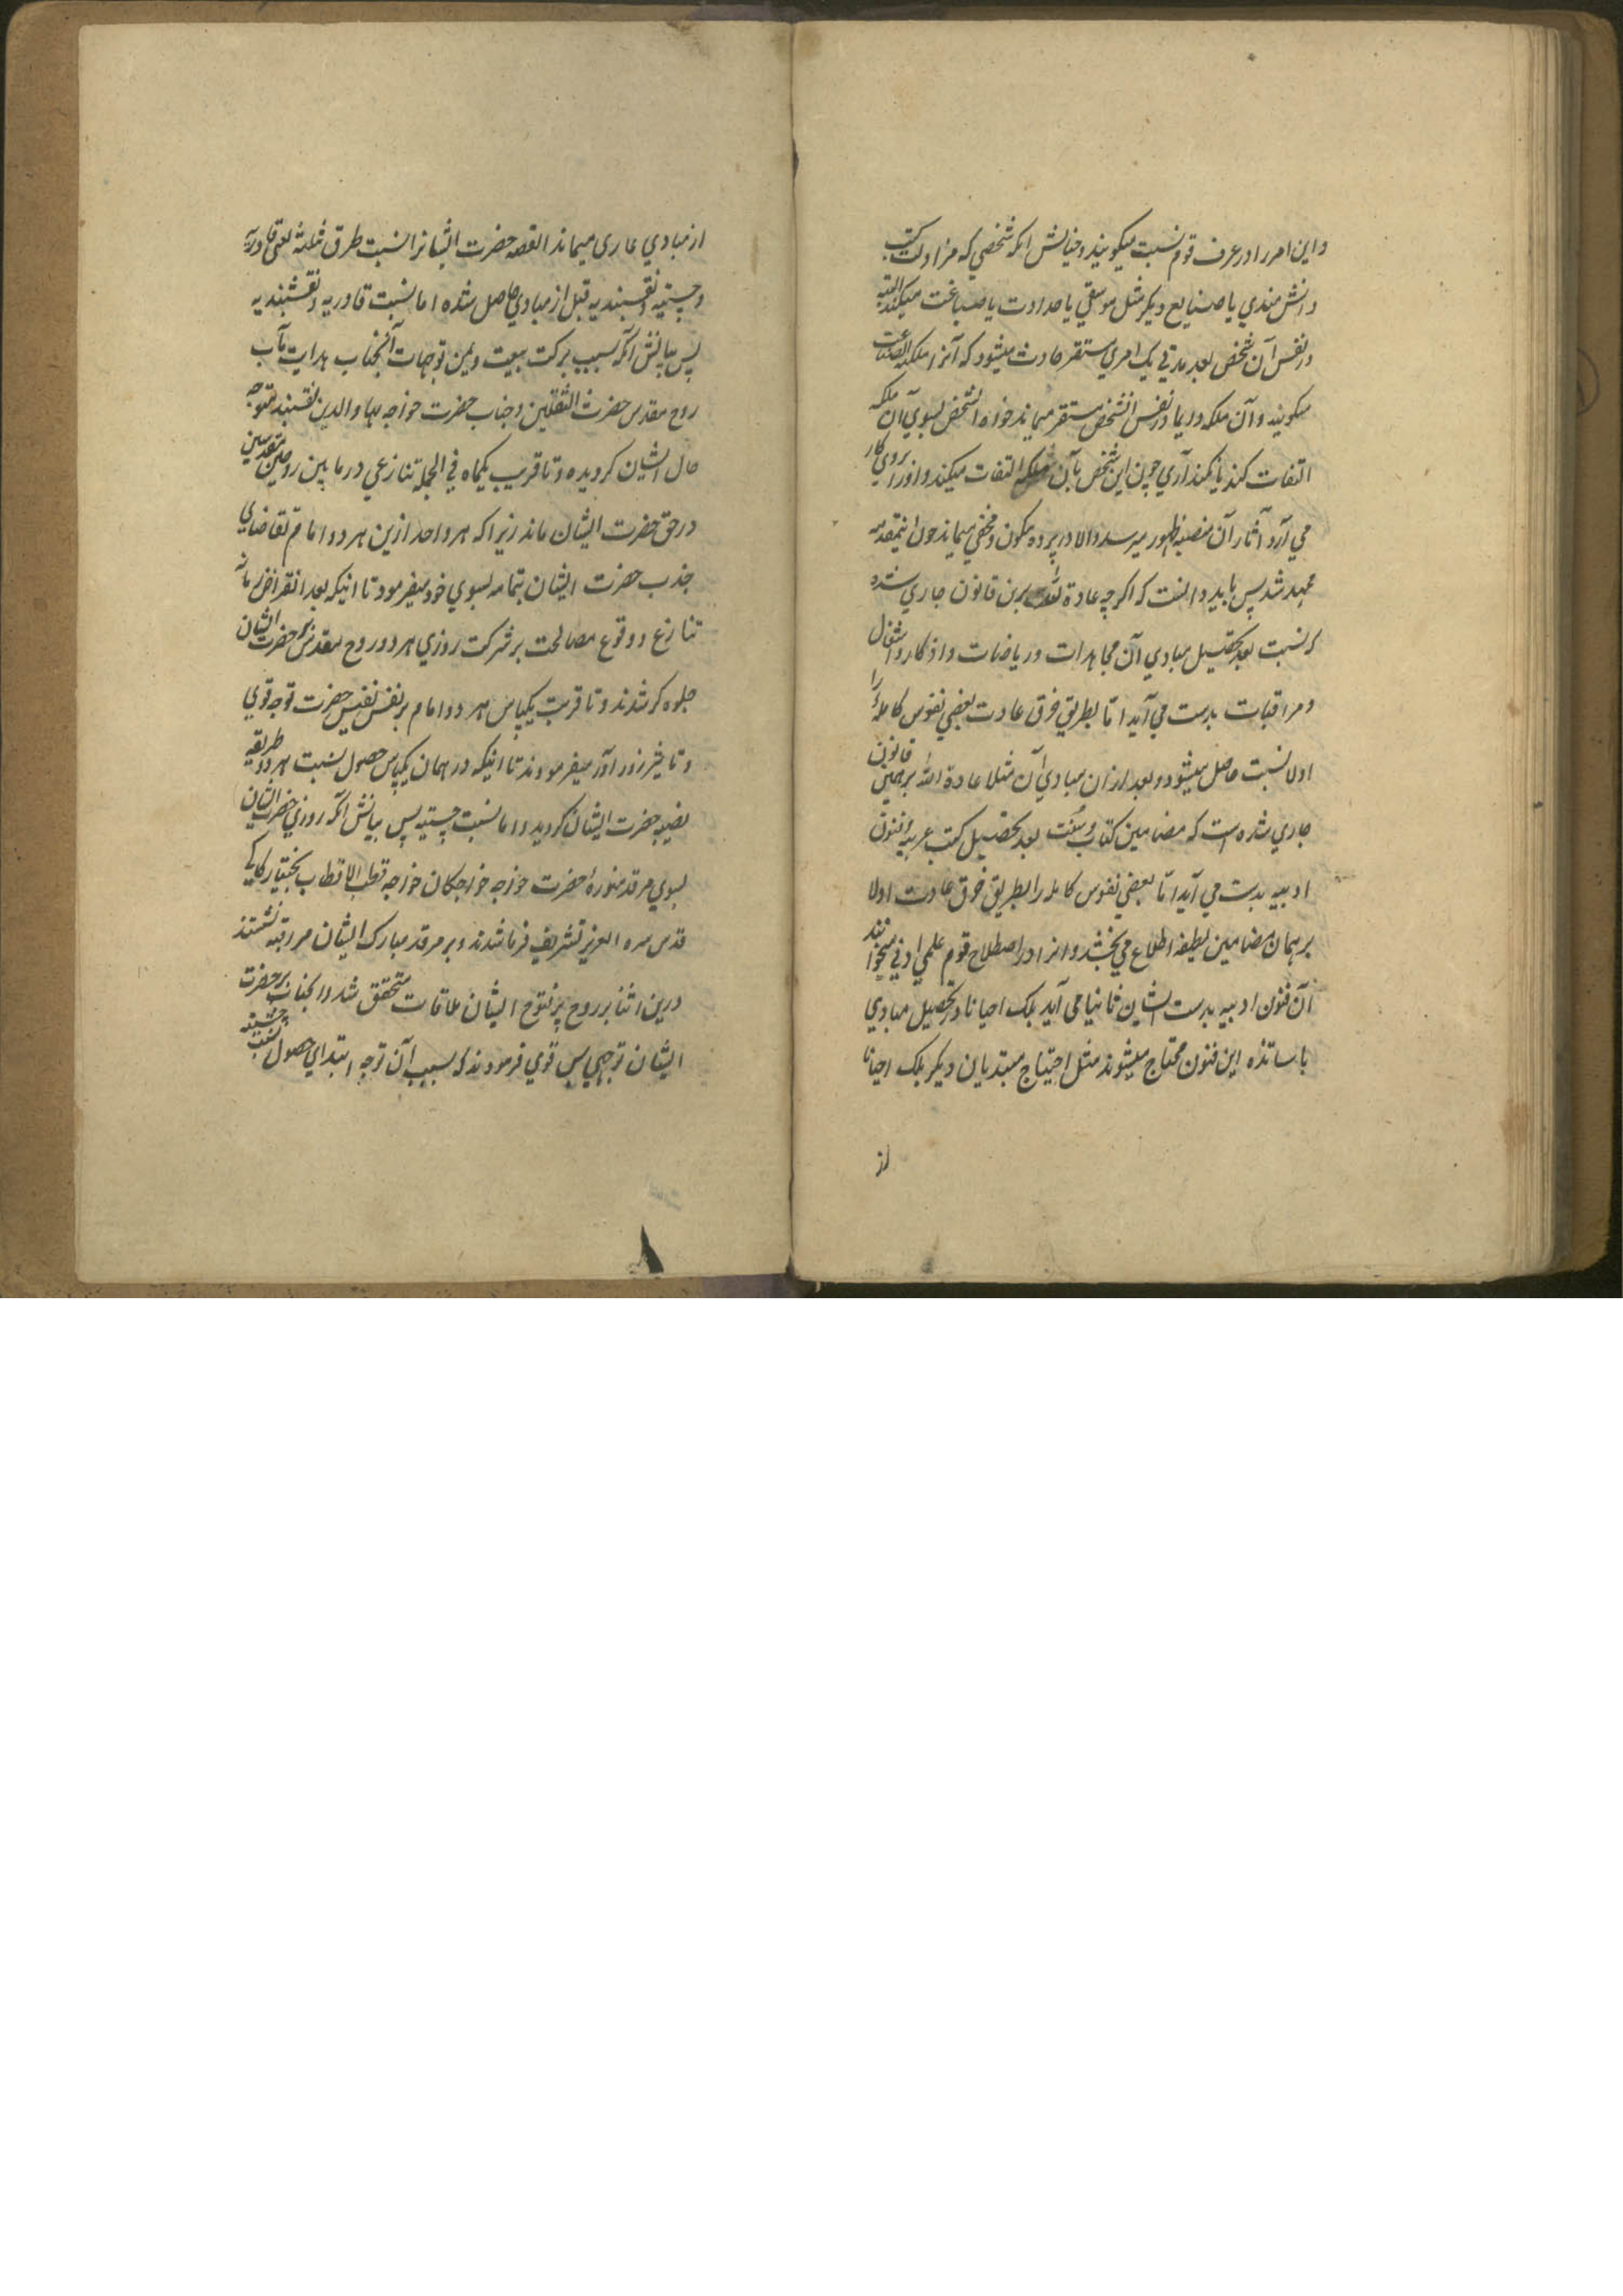 و این امر را در عرف قوم نسبت میکویند و خیالش انکه شخصی که مزاولت کتب
دانش مندی یا صنایع دیکر مثل موسقی یا حدادت یا صباغت میکند البته
در نفس آن شخص بعد مدتی یک امری مستقر حادث میشود که آنرا ملکه الصناعت
میکویند و آن ملکه دایما در نفس انشخص مستقر میماند خواه انشخص بسوی آن ملکه
التفات کند یا نکند آری چون این شخص بآن ملکه التفات میکند و اورا بروی کار
می آرد آثار آن بمنصه ظهور میرسد و الا در پرده مکون و مخفی میماند چون اینمقدمه
ممهد شد پس باید دانست که اکرچه عادة الله برین قانون جاری شده
که نسبت بعد تحصیل مبادی آن مجاهدات و ریاضات و اذکار و اشغال
و مراقبات بدست می آید اما بطریق خرق عادت بعضی نفوس کامله را
اولا نسبت حاصل میشود و بعد ازان مبادی آن مثلا عادة الله بر همین قانون
جاری شده است که مضامین کتاب و سنت بعد تحصیل کتب عربیه و فنون
ادبیه بدست می آید اما بعضی نفوس کامله را بطریق خرق عادت اولا
بر همان مضامین لطیفه اطلاع می بخشد و انرا در اصطلاح قوم علم لدنی میخوانند
آن فنون ادبیه بدست ایشان ثانیا می آید بلکه احیانا در تحصیل مبادی
باساتذه این فنون محتاج میشوند مثل احتیاج مبتدیان دیکر بلکه احیانا
از
از مبادی عاری میماند القصه حضرت ایشانرا نسبت طرق ثلثه یعنی قادریه
و چشتیه و نقشبندیه قبل از مبادی حاصل شده اما نسبت قادریه و نقشبندیه
پس بیانش آنکه بسبب برکت بیعت و یمن توجهات آنجناب هدایت مآب
روح مقدس حضرت الثقلین و جناب حضرت خواجه بهاو الدین نقشبند متوجه
حال ایشان کردیده و تا قریب یکماه فی الجمله تنازعی در ما بین روحین مقدسین
در حق حضرت ایشان ماند زیرا که هر واحد ازین هر دو امام تقاضای
جذب حضرت ایشان بتمامه بسوی خود میفرمود تا اینکه بعد انقراض زمانه
تنازع و وقوع مصالحت بر شرکت روزی هر دو روح مقدس بر حضرت ایشان
جلوه کر شدند و تا قریب یکپاس هر دو امام بر نفس نفیس حضرت توجه قوی
و تاثیر زور آور میفرمودند تا اینکه در همان یکپاس حصول نسبت هر دو طریقه
نصیبه حضرت ایشان کردید و اما نسبت چشتیه پس بیانش آنکه روزی حضرت ایشان
بسوی مرقد منوره حضرت خواجه خواجکان خواجه قطب الاقطاب بختیار کاکی
قدس سره العزیز تشریف فرما شدند و بر مرقد مبارک ایشان مراقبه نشستند
درین اثنا بر روح پر فتوح ایشان ملاقات متحقق شد و انجناب بر حضرت
ایشان توجهی بس قوی فرمودند که بسبب آن توجه ابتدای حصول نسبت چشتیه